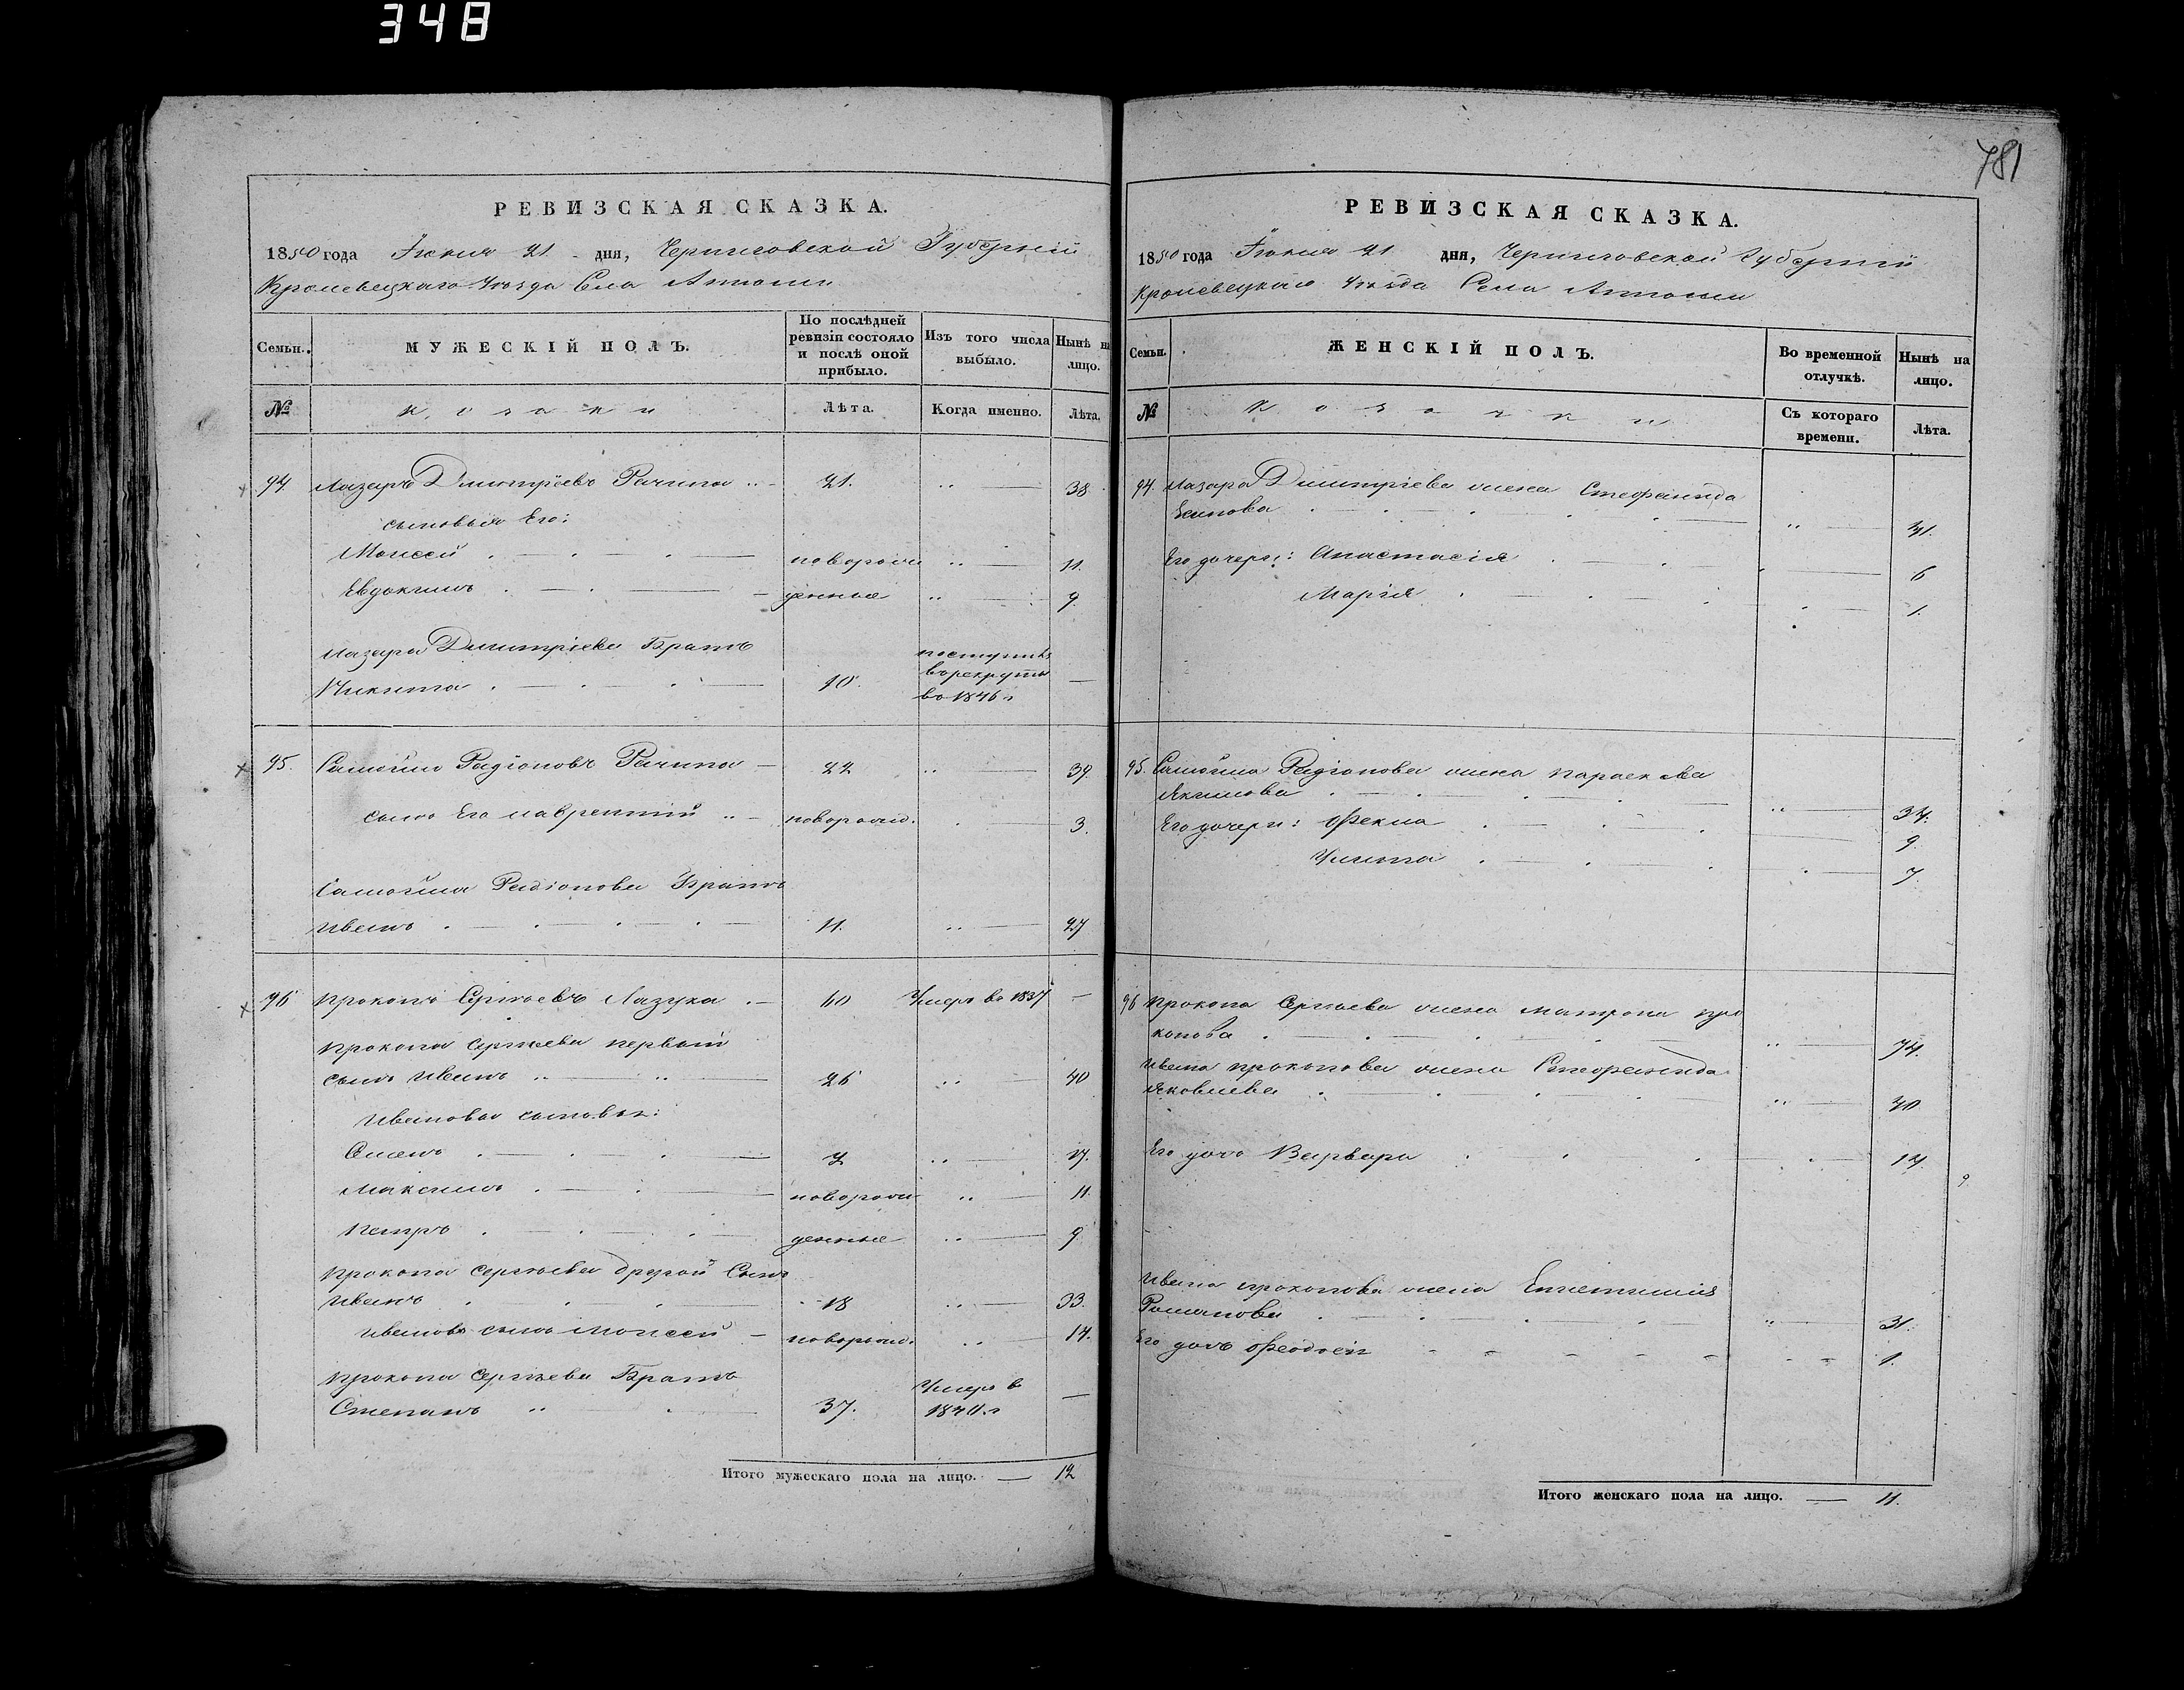 348
781
РЕВИЗСКАЯ СКАЗКА.
1850 года Іюня 21 дня, Черниговской Губерніи
Кролевецкаго Уѣзда Села
Семьи.
МУЖЕСКІЙ ПОЛЪ.
По послѣдней ревизіи состояло и послѣ оной прибыло.
Изъ того числа выбыло.
Нынѣ на лицо.
№
Козаки
Лѣта.
Когда именно.
Лѣта.
94. Лазарь Димитріевъ Рачина 21. 38
сыновья Его:
Моисей новорож 11.
Евдокимъ денные 9.
Лазаря Димитріева Братъ поступилъ
Никита 10. в рекруты
во 1846 г
95. Самойло Радіоновъ Рачина 22 39.
сынъ Его Лаврентий новорожд. 3.
Самойла Радіонова Братъ
Иванъ 11. 27
96 Прокопъ Сергѣевъ Лазука 60 Умеръ во 1837
Прокопа Сергѣева первый
сынъ Иванъ 26 40
Ивановы сыновья:
Семенъ 17.
Максимъ новорож 11.
Петръ денные 9
Прокопа Сергѣева другой Сынъ
Иванъ 18 33.
Ивановъ сынъ Моисей новорожд. 14.
Прокопа Сергѣева Братъ Умеръ в
Степанъ 37. 1840 г
Итого мужескаго пола на лицо. 12
РЕВИЗСКАЯ СКАЗКА.
1850 года Іюня 21 дня, Черниговской Губерніи
Кролевецкаго Уѣзда Села
Семьи.
ЖЕНСКІЙ ПОЛЪ.
Во временной отлучкѣ.
Нынѣ на лицо.
№
Козачки
Съ котораго времени.
Лѣта.
94. Лазаря Димитріева жена Стефанида
31.
Его дочери: Анастасія 6
Марія 1.
95. Самойла Радіонова жена Параскева
Якимова 34.
Его дочери: Фекла 9.
Улита 7.
96 Прокопа Сергѣева жена Матрона Про
копова 74.
Ивана Прокопова жена Стефанида
Яковлева 40
Его дочь Варвара 14.
Ивана Прокопова жена
Романова 31.
Его дочь 1.
Итого женскаго пола на лицо. 11.